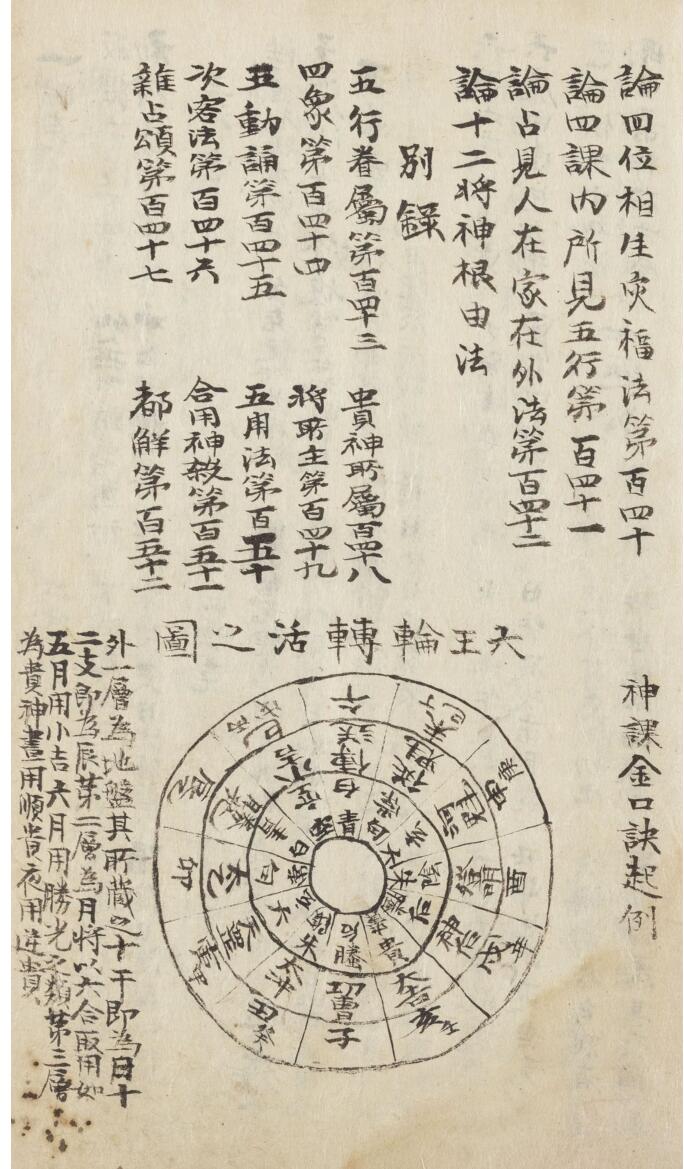 論四位相生灾福法第百四十
論四課内所見五行第百四十一
論占見人在家在外法第百四十二
論十二将神根由法
別錄
五行眷屬第百四十三
四象第百四十四
五動誦第百四十五
次客法第百四十六
雜占頌第百四十七
貴神所屬百四十八
將所主第百四十九
五用法第百五十
合用神殺第百五十一
都解第百五十二
神課金口訣起例
六壬輪轉活之圖
午
丁未
申庚
酉
戌辛
亥壬
子
丑癸
寅甲
卯
辰
巳丙
傳送
從魁
河魁
登明
神后
大吉
功曹
太冲
天罡
太乙
勝光
小吉
外一層為地盤其所藏之十干即為日十
二支即為辰第二層為月將以六合取用如
五月用小吉六月用勝光之類第三層
為貴神晝用順貴夜用逆貴